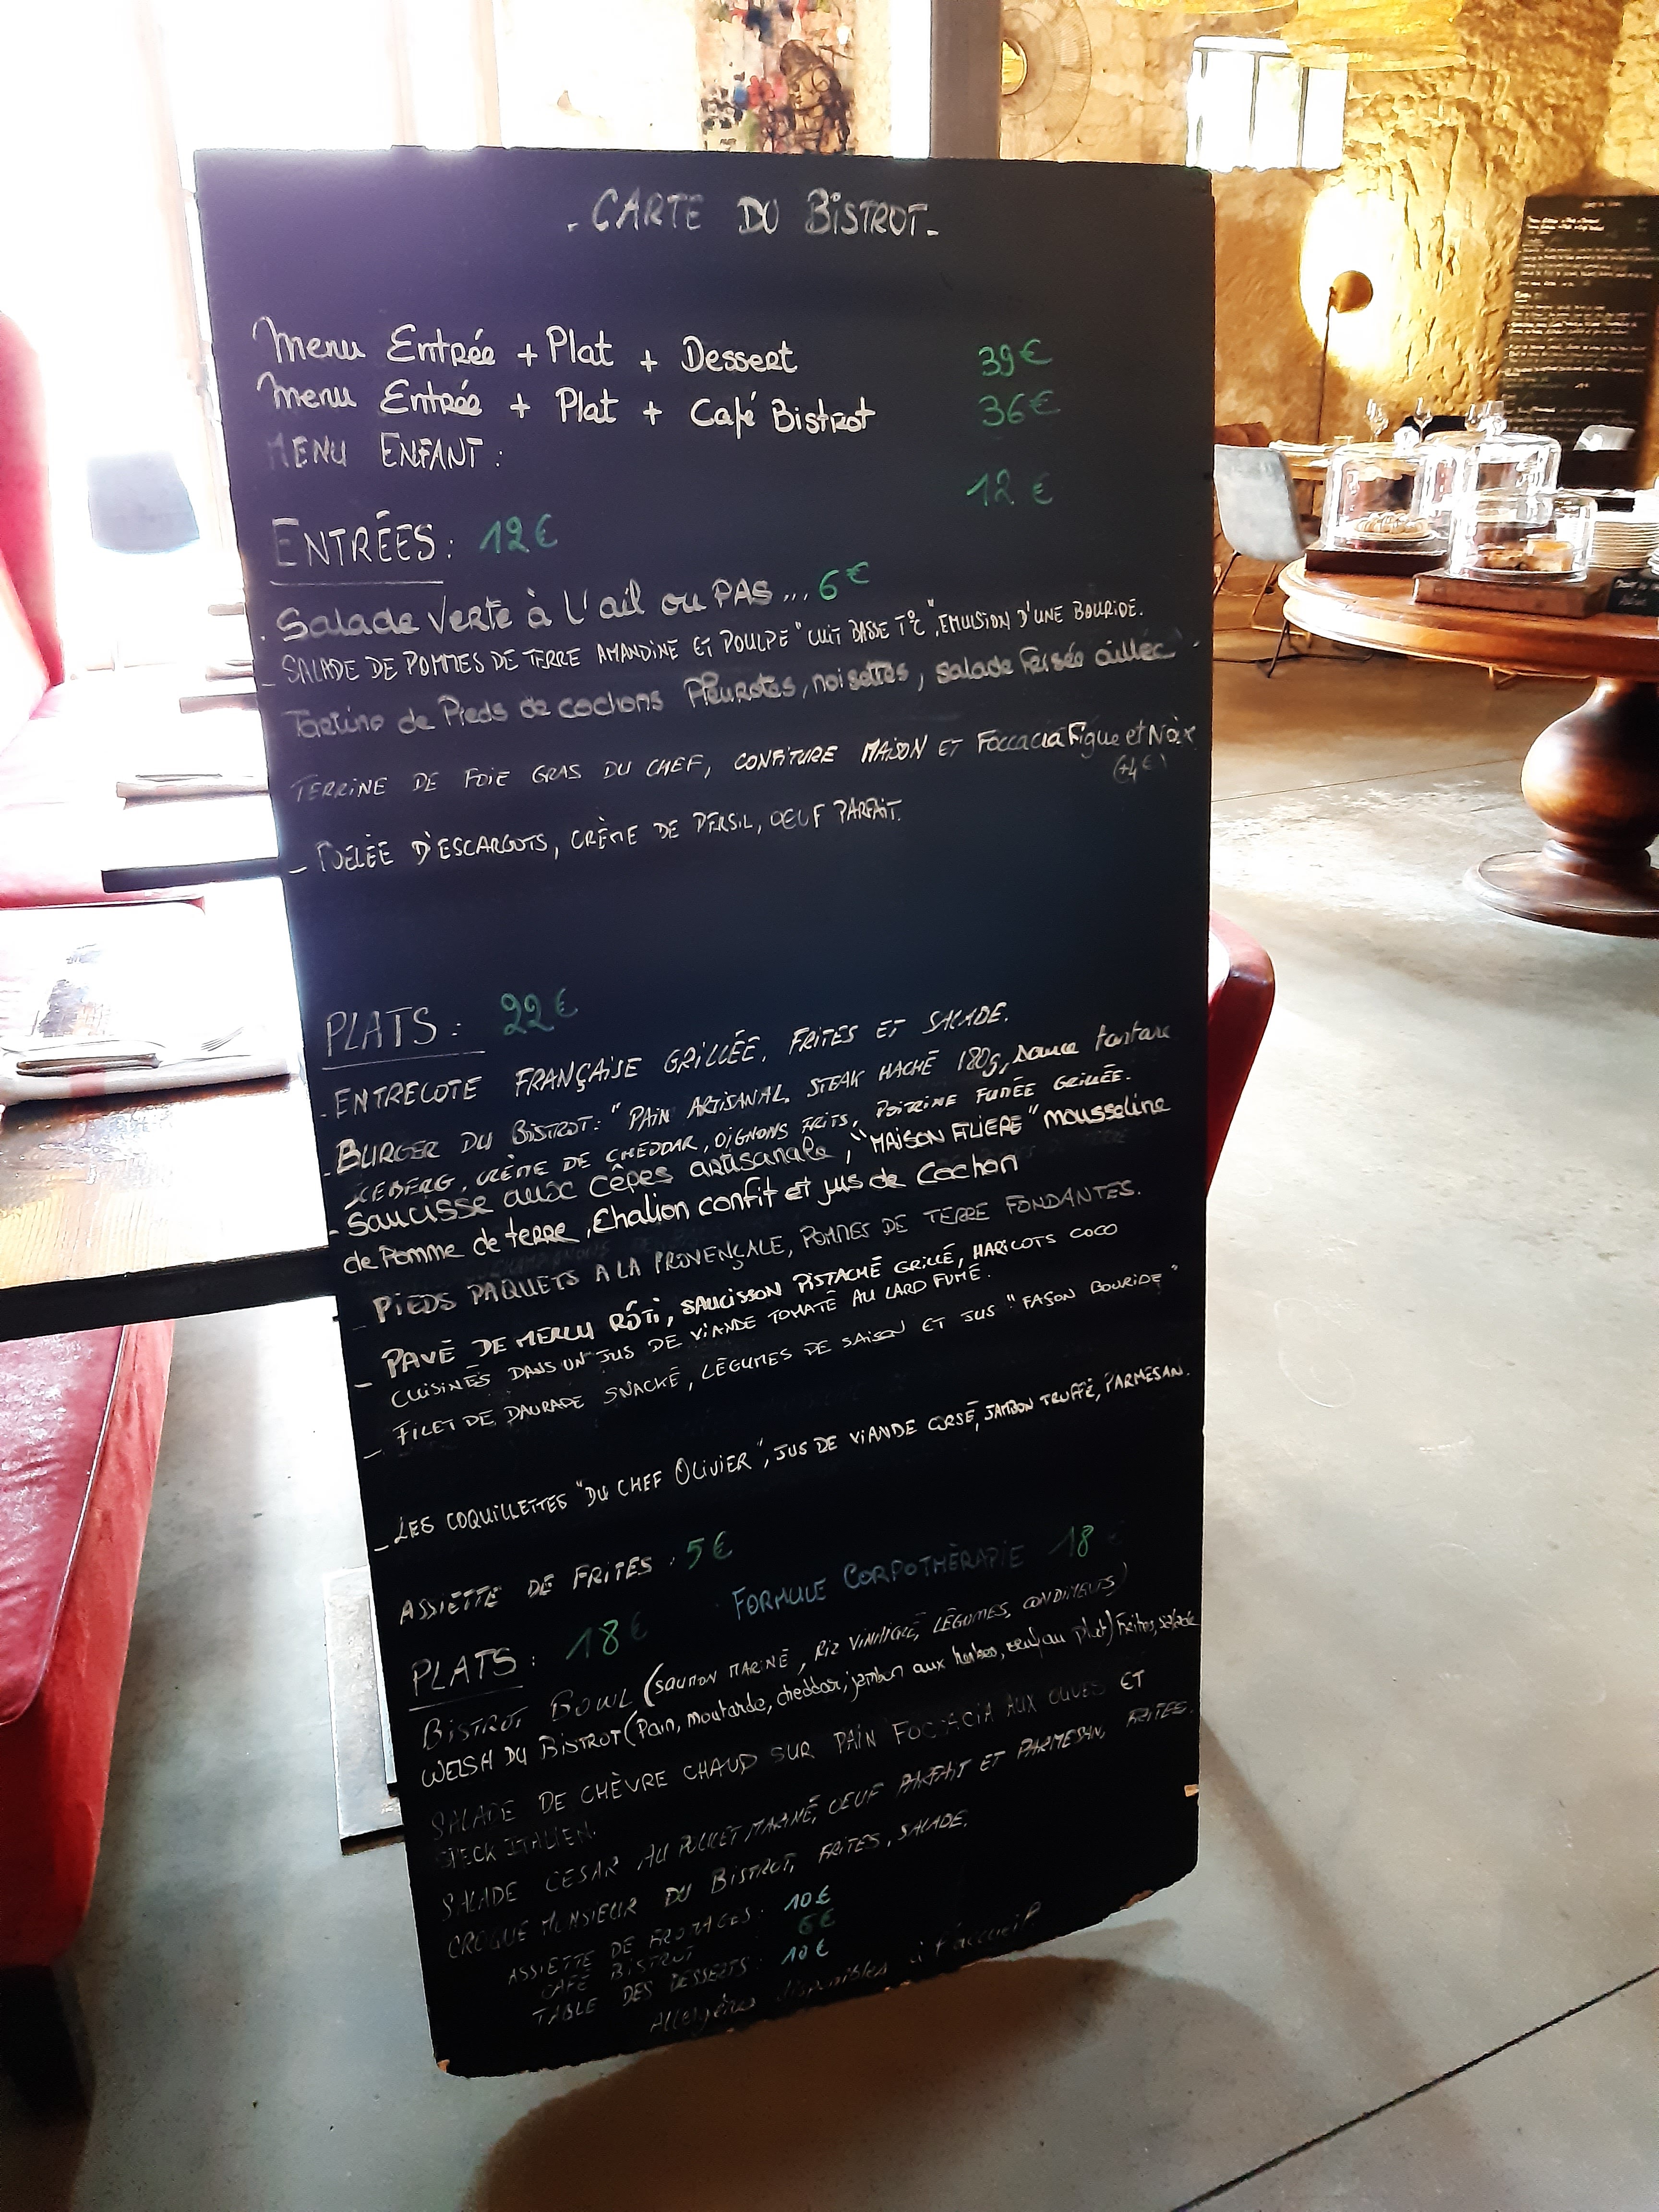 - CARTE DU BISTROT -
Menu Entrée + Plat + Dessert 39€
Menu Entrée + Plat + Café Bistrot 36€
MENU ENFANT : 12 €
ENTRÉES : 12€
. Salade Verte à L'ail ou PAS... 6€
- SALADE DE POMMES DE TERRE AMANDINE ET POULPE "CUIT BASSE T°C", EMULSION D'UNE BOURIDE.
Tartine de Pieds de cochons Pleurotes, noisettes, salade Feisée aillée
TERRINE DE FOIE GRAS DU CHEF, CONFITURE MAISON ET Foccacia Figue et Noix
(+4€)
- POÊLÉE D'ESCARGOTS, CRÈME DE PERSIL, OEUF PARFAIT.
PLATS : 22€
. ENTRECOTE FRANÇAISE GRILLÉE, FRITES ET SALADE.
- BURGER DU BISTROT : "PAIN ARTISANAL, STEAK HACHÉ 180g, sauce tartare
ICEBERG, CRÈME DE CHEDDAR, OIGNONS FRITS, POITRINE FUMÉE GRILLÉE.
- Saucisse aux Cêpes artisanale, "MAISON FILIERE" mousseline
de Pomme de terre, Echalion confit et jus de Cochon
- PIEDS PAQUETS A LA PROVENÇALE, POMMES DE TERRE FONDANTES.
- PAVÉ DE MERLU RÔTI, SAUCISSON PISTACHÉ GRILLÉ, HARICOTS COCO
CUISINÉS DANS UN JUS DE VIANDE TOMATÉ AU LARD FUMÉ.
- FILET DE DAURADE SNACKÉ, LÉGUMES DE SAISON ET JUS "FAÇON BOURIDE"
- LES COQUILLETTES "DU CHEF OLIVIER", JUS DE VIANDE CORSÉ, JAMBON TRUFFÉ, PARMESAN.
ASSIETTE DE FRITES : 5€
. FORMULE CORPOTHÉRAPIE 18 €
PLATS : 18€
BISTROT BOWL (SAUMON MARINÉ, RIZ VINAIGRÉ, LÉGUMES, CONDIMENTS)
WELSH DU BISTROT (Pain, moutarde, cheddar, jambon aux herbes, oeuf au plat) Frites, salade
SALADE DE CHÈVRE CHAUD SUR PAIN FOCCACIA AUX OLIVES ET
SPECK ITALIEN.
SALADE CESAR AU POULET MARINÉ, OEUF PARFAIT ET PARMESAN, FRITES.
CROQUE MONSIEUR DU BISTROT, FRITES, SALADE.
ASSIETTE DE FROMAGES : 10€
CAFÉ BISTROT 6€
TABLE DES DESSERTS : 10€
Allergènes disponibles à l'accueil